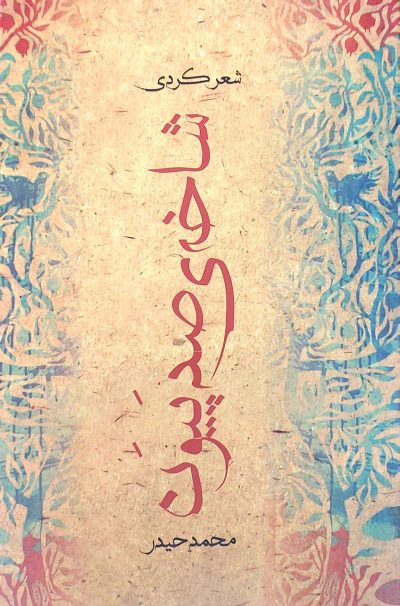 شعر کردی
شاخه‌ی صد پَیوَن
محمد حیدر